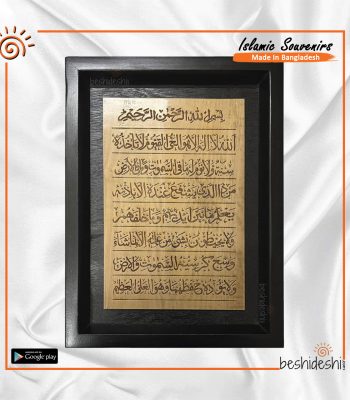 Islamic Souvenirs
Made in Bangladesh
beshideshi
بسم الله الرحمن الرحيم
الله لا اله الا هو الحي القيوم لا تاخذه
سنة ولا نوم له ما في السموت وما في الارض
من ذا الذي يشفع عنده الا باذنه
يعلم ما بين ايديهم وما خلفهم
ولا يحيطون بشيء من علمه الا بما شاء
وسع كرسيه السموت والارض
ولا يؤده حفظهما وهو العلي العظيم
Google play
beshideshi